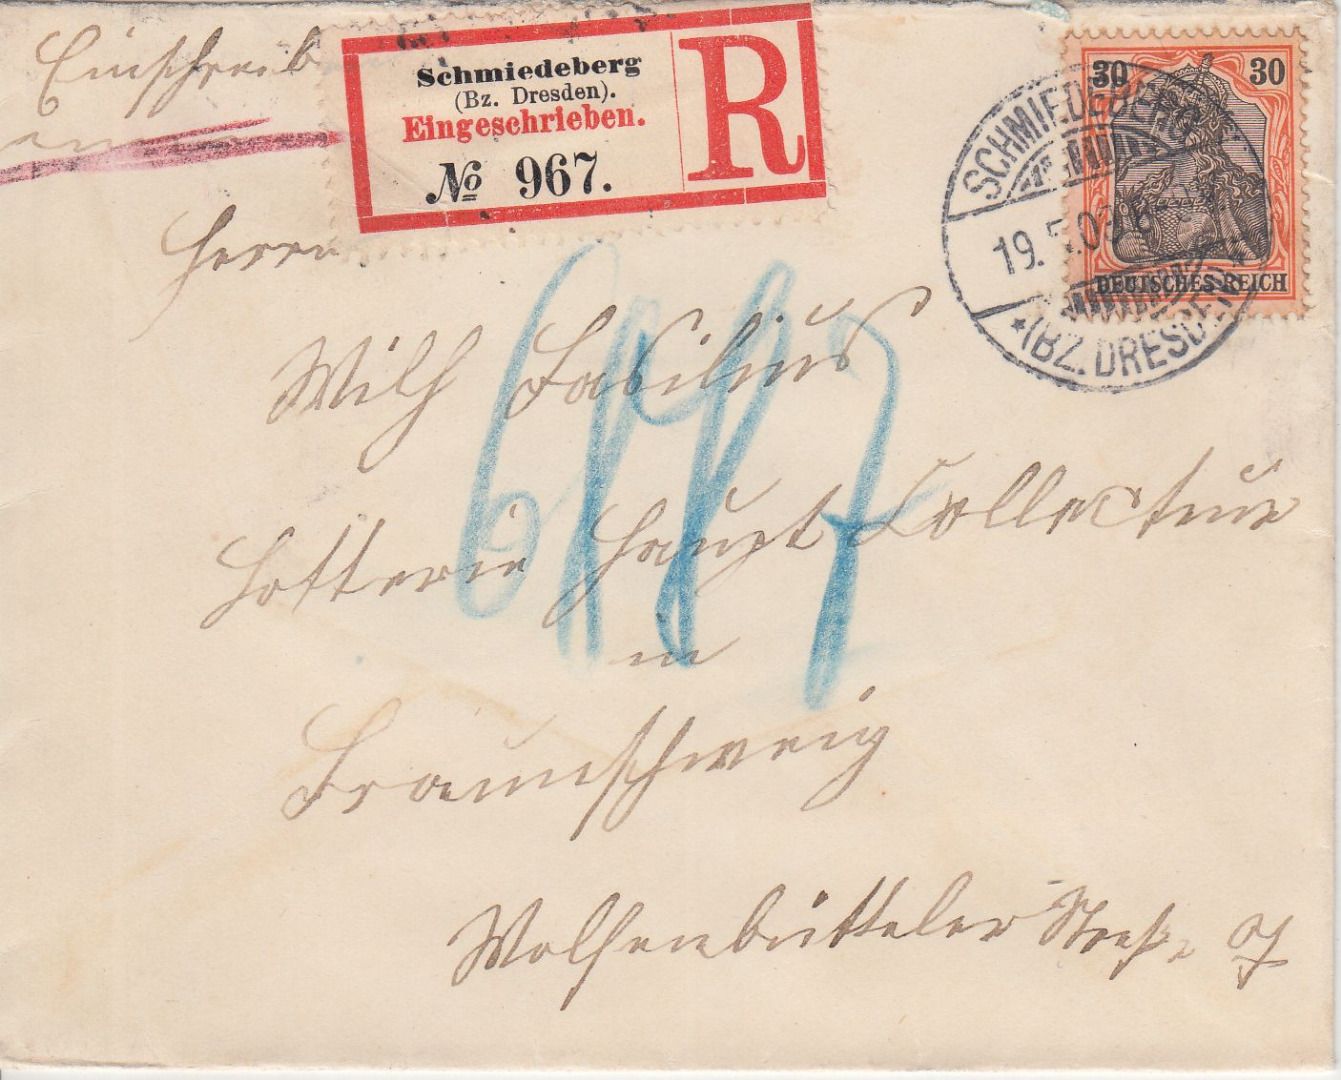 Einschreib
Schmiedeberg
(Bz. Dresden).
Eingeschrieben.
No 967.
R
30 30
DEUTSCHES REICH
SCHMIEDEBERG
19. 5. 03.
*(BZ. DRESDEN)*
Herrn
Wilh Basilius
Lotterie Haupt Collecteur
in
Braunschweig
Wolfenbütteler Straße